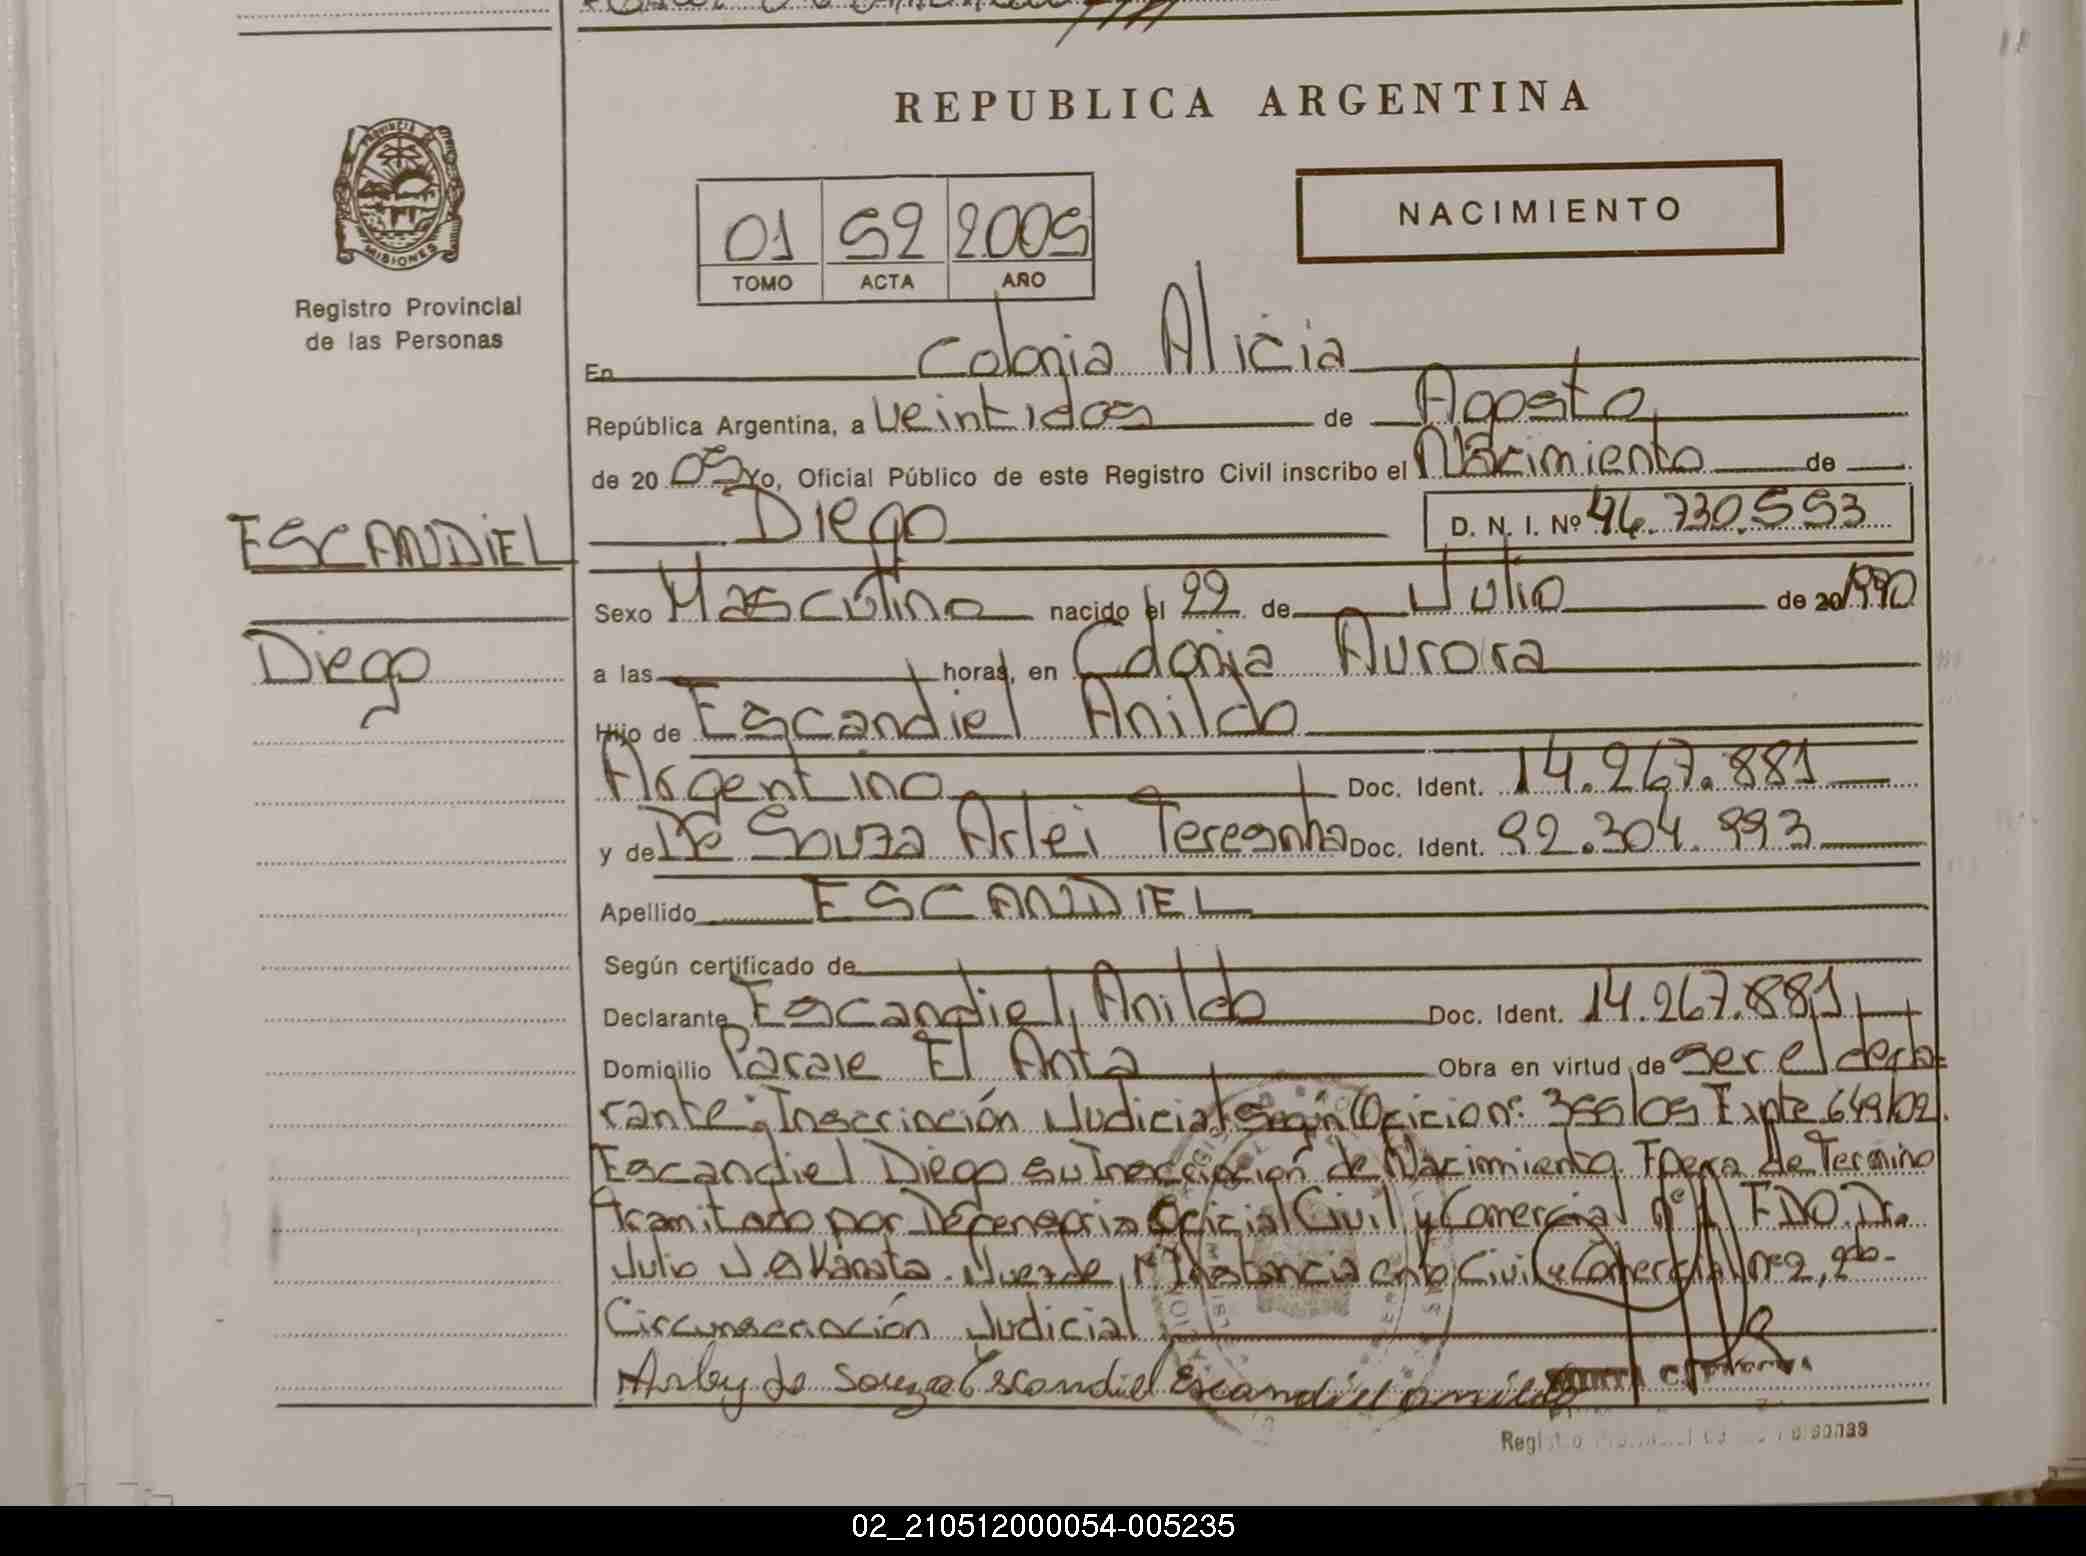 REPUBLICA ARGENTINA
PROVINCIA
MISIONES
Registro Provincial
de las Personas
NACIMIENTO
01 52 2005
TOMO ACTA AÑO
En Colonia Alicia
República Argentina, a veintidos de Agosto
de 20 05 Yo, Oficial Público de este Registro Civil inscribo el Nacimiento de
Diego D. N. I. Nº 46.730.553
ESCANDIEL
Diego
Sexo Masculino nacido el 22 de Julio de 20 1990
a las horas, en Colonia Aurora
Hijo de Escandiel Anildo
Argentino Doc. Ident. 14.267.881
y de De Souza Arlei Teresinha Doc. Ident. 92.304.993
Apellido ESCANDIEL
Según certificado de
Declarante Escandiel, Anildo Doc. Ident. 14.267.881
Domicilio Paraje El Anta Obra en virtud de ser el decla=
rante: Inscripción Judicial según Oficio nº: 355/05 Expte 649/02.
Escandiel Diego su Inscripción de Nacimiento Fuera de Termino
tramitado por Defensoria Oficial Civil y Comercial nº 1 FDO. Dr.
Julio J. Juez de 1º Instancia en lo Civil y Comercial nº 2, 2da-
Circunscripción Judicial
Arley de Souza Escandiel Escandiel anildo
02_210512000054-005235